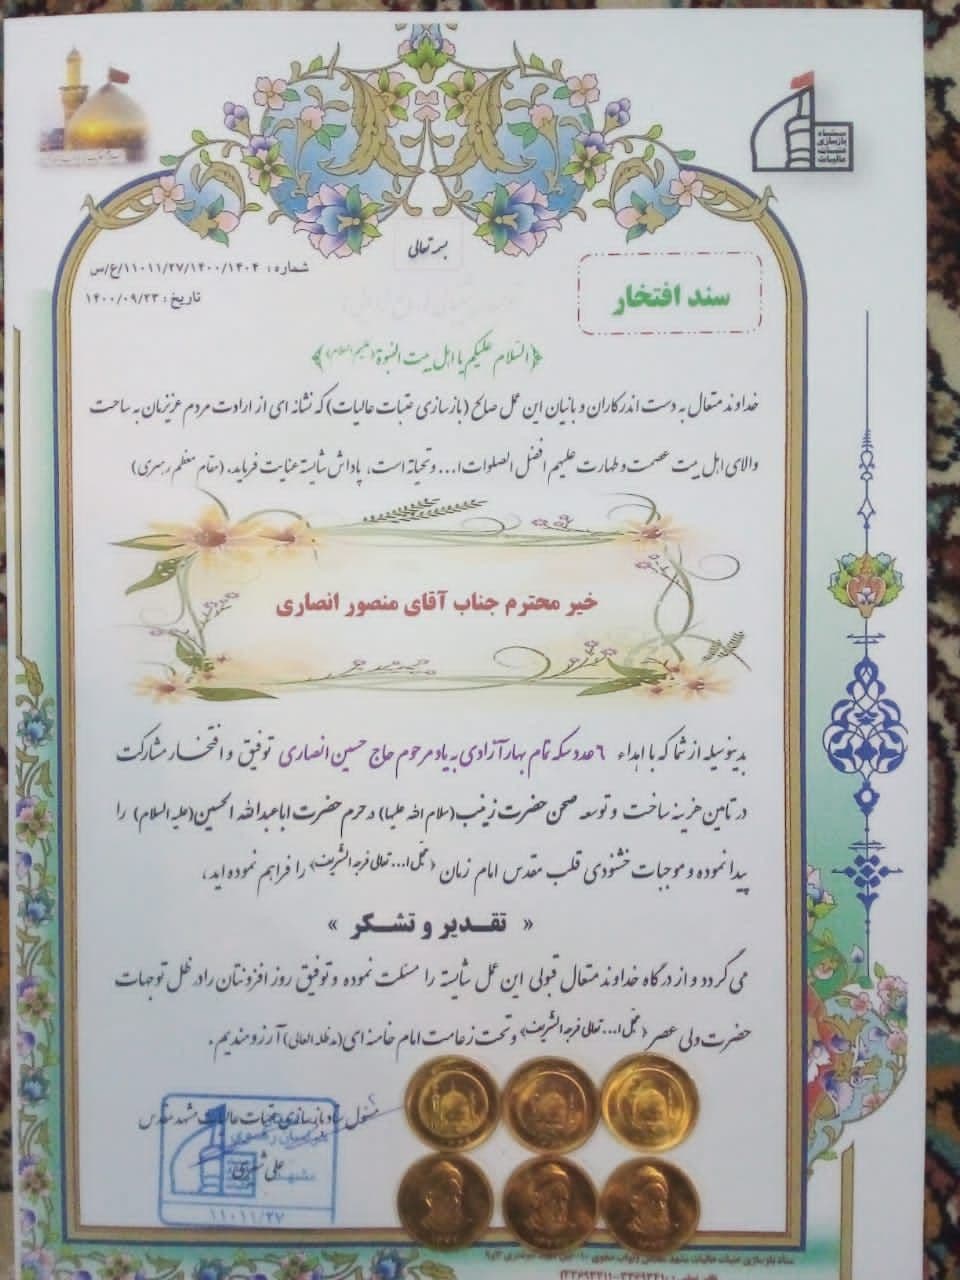 ستاد
بازسازی
عتبات
عالیات
بسمه تعالی
شماره : ۱۱۰۱۱/۲۷/۱۴۰۰/۱۴۰۴/ع/س
تاریخ : ۱۴۰۰/۰۹/۲۳
سند افتخار
﴿السلام علیکم یا اهل بیت النبوة (علیهم السلام)﴾
خداوند متعال به دست اندرکاران و بانیان این عمل صالح (بازسازی عتبات عالیات) که نشانه ای از ارادت مردم عزیزمان به ساحت
والای اهل بیت عصمت و طهارت علیهم افضل الصلوات ا... و تحیاته است، پاداش شایسته عنایت فرماید. (مقام معظم رهبری)
خیر محترم جناب آقای منصور انصاری
بدینوسیله از شما که با اهداء ۶ عدد سکه تمام بهار آزادی به یاد مرحوم حاج حسین انصاری توفیق و افتخار مشارکت
در تامین هزینه ساخت و توسعه صحن حضرت زینب (سلام الله علیها) در حرم حضرت اباعبدالله الحسین (علیه السلام) را
پیدا نموده و موجبات خشنودی قلب مقدس امام زمان «عجل ا... تعالی فرجه الشریف» را فراهم نموده اید،
« تقـدیر و تشـکر »
می گردد و از درگاه خداوند متعال قبولی این عمل شایسته را مسئلت نموده و توفیق روز افزونتان را در ظل توجهات
حضرت ولی عصر «عجل ا... تعالی فرجه الشریف» و تحت زعامت امام خامنه ای (مدظله العالی) آرزومندیم.
مسئول ستاد بازسازی عتبات عالیات مشهد مقدس
علی
۱۱۰۱۱/۲۷
ستاد بازسازی عتبات عالیات مشهد